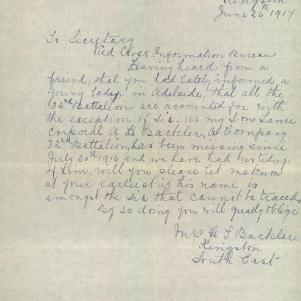 Kingston
June 26th 1917
To Secretary
Red Cross Information Bureau
Having heard from a
friend, that you had lately informed a
young lady in Adelaide, that all the
32nd Battalion are accounted for with
the exception of six. As my son Lance
Corporal A G Backler, A Company
32nd Battalion, has been missing since
July 20th 1916 and we have had no tidings
of him, will you please let me know
at your earliest if his name is
amongst the six that cannot be traced.
By so doing you will greatly oblige
Mrs H J Backler
Kingston
South East